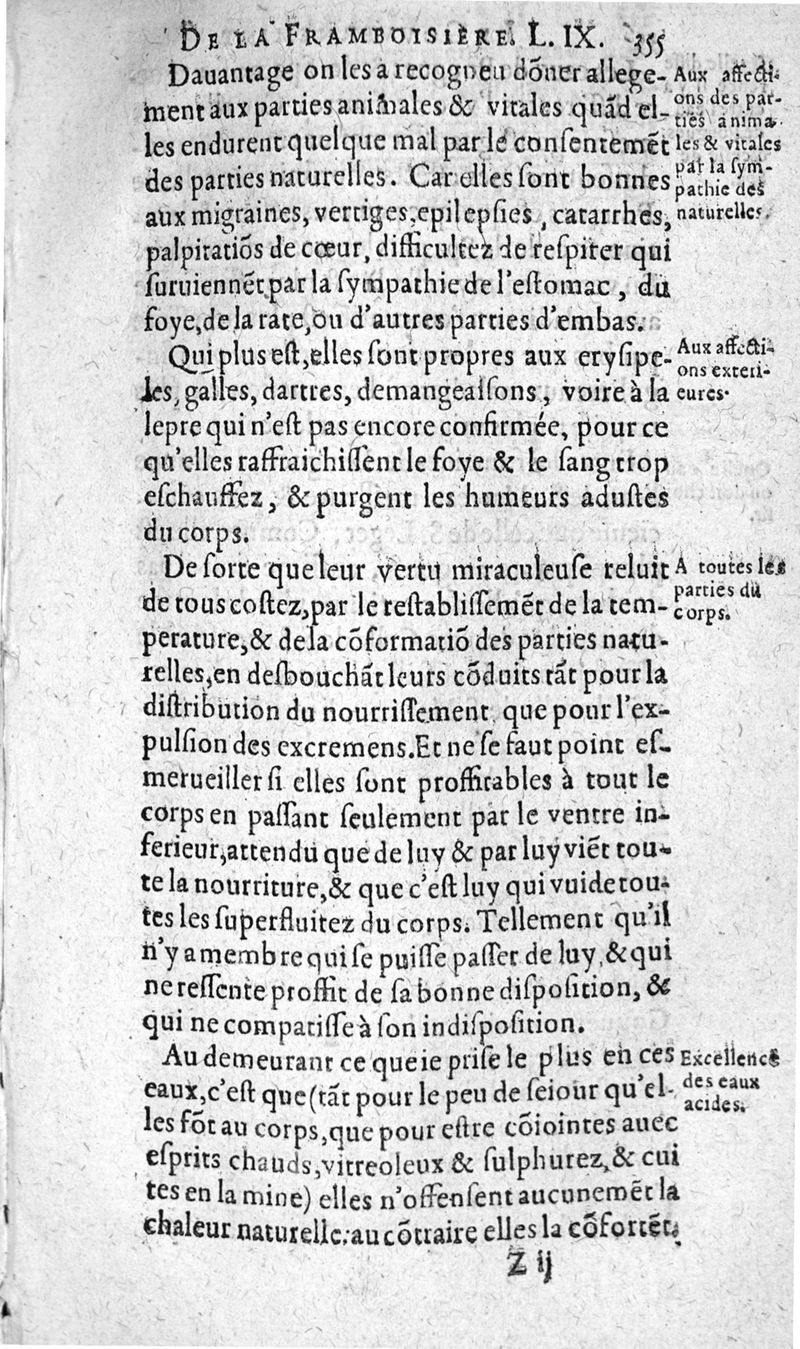 DE LA FRAMBOISIÈRE. L. IX. 355
Dauantage on les a recogneu dõner allege-
ment aux parties animales & vitales quãd el-
les endurent quelque mal par le conſentemẽt
des parties naturelles. Car elles ſont bonnes
aux migraines, vertiges, epilepſies, catarrhes,
palpitatiõs de cœur, difficultez de reſpirer qui
ſuruiennẽt par la ſympathie de l'eſtomac, du
foye, de la rate, ou d'autres parties d'embas.
Aux affecti-
ons des par-
ties anima-
les & vitales
par la ſym-
pathie des
naturelles.
Qui plus eſt, elles ſont propres aux eryſipe-
les, galles, dartres, demangeaiſons, voire à la
lepre qui n'eſt pas encore confirmée, pour ce
qu'elles raffraichiſſent le foye & le ſang trop
eſchauffez, & purgent les humeurs aduſtes
du corps.
Aux affecti-
ons exteri-
eures.
De ſorte que leur vertu miraculeuſe reluit
de tous coſtez, par le reſtabliſſemẽt de la tem-
perature, & de la cõformatiõ des parties natu-
relles, en desbouchãt leurs cõduits tãt pour la
diſtribution du nourriſſement, que pour l'ex-
pulſion des excremens. Et ne ſe faut point eſ-
merueiller ſi elles ſont proffitables à tout le
corps en paſſant ſeulement par le ventre in-
ferieur, attendu que de luy & par luy viẽt tou-
te la nourriture, & que c'eſt luy qui vuide tou-
tes les ſuperfluitez du corps. Tellement qu'il
n'y a membre qui ſe puiſſe paſſer de luy, & qui
ne reſſente proffit de ſa bonne diſpoſition, &
qui ne compatiſſe à ſon indiſpoſition.
A toutes les
parties du
corps.
Au demeurant ce que ie priſe le plus en ces
eaux, c'eſt que (tãt pour le peu de ſeiour qu'el-
les fõt au corps, que pour eſtre cõiointes auec
eſprits chauds, vitreoleux & ſulphurez, & cui
tes en la mine) elles n'offenſent aucunemẽt la
chaleur naturelle: au cõtraire elles la cõfortẽt,
Excellence
des eaux
acides.
Z ij